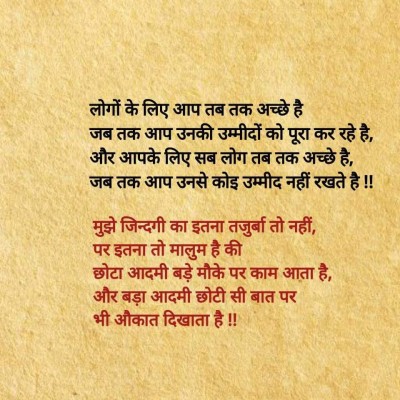 लोगों के लिए आप तब तक अच्छे है
जब तक आप उनकी उम्मीदों को पूरा कर रहे है,
और आपके लिए सब लोग तब तक अच्छे है,
जब तक आप उनसे कोइ उम्मीद नहीं रखते है !!
मुझे जिन्दगी का इतना तजुर्बा तो नहीं,
पर इतना तो मालुम है की
छोटा आदमी बड़े मौके पर काम आता है,
और बड़ा आदमी छोटी सी बात पर
भी औकात दिखाता है !!